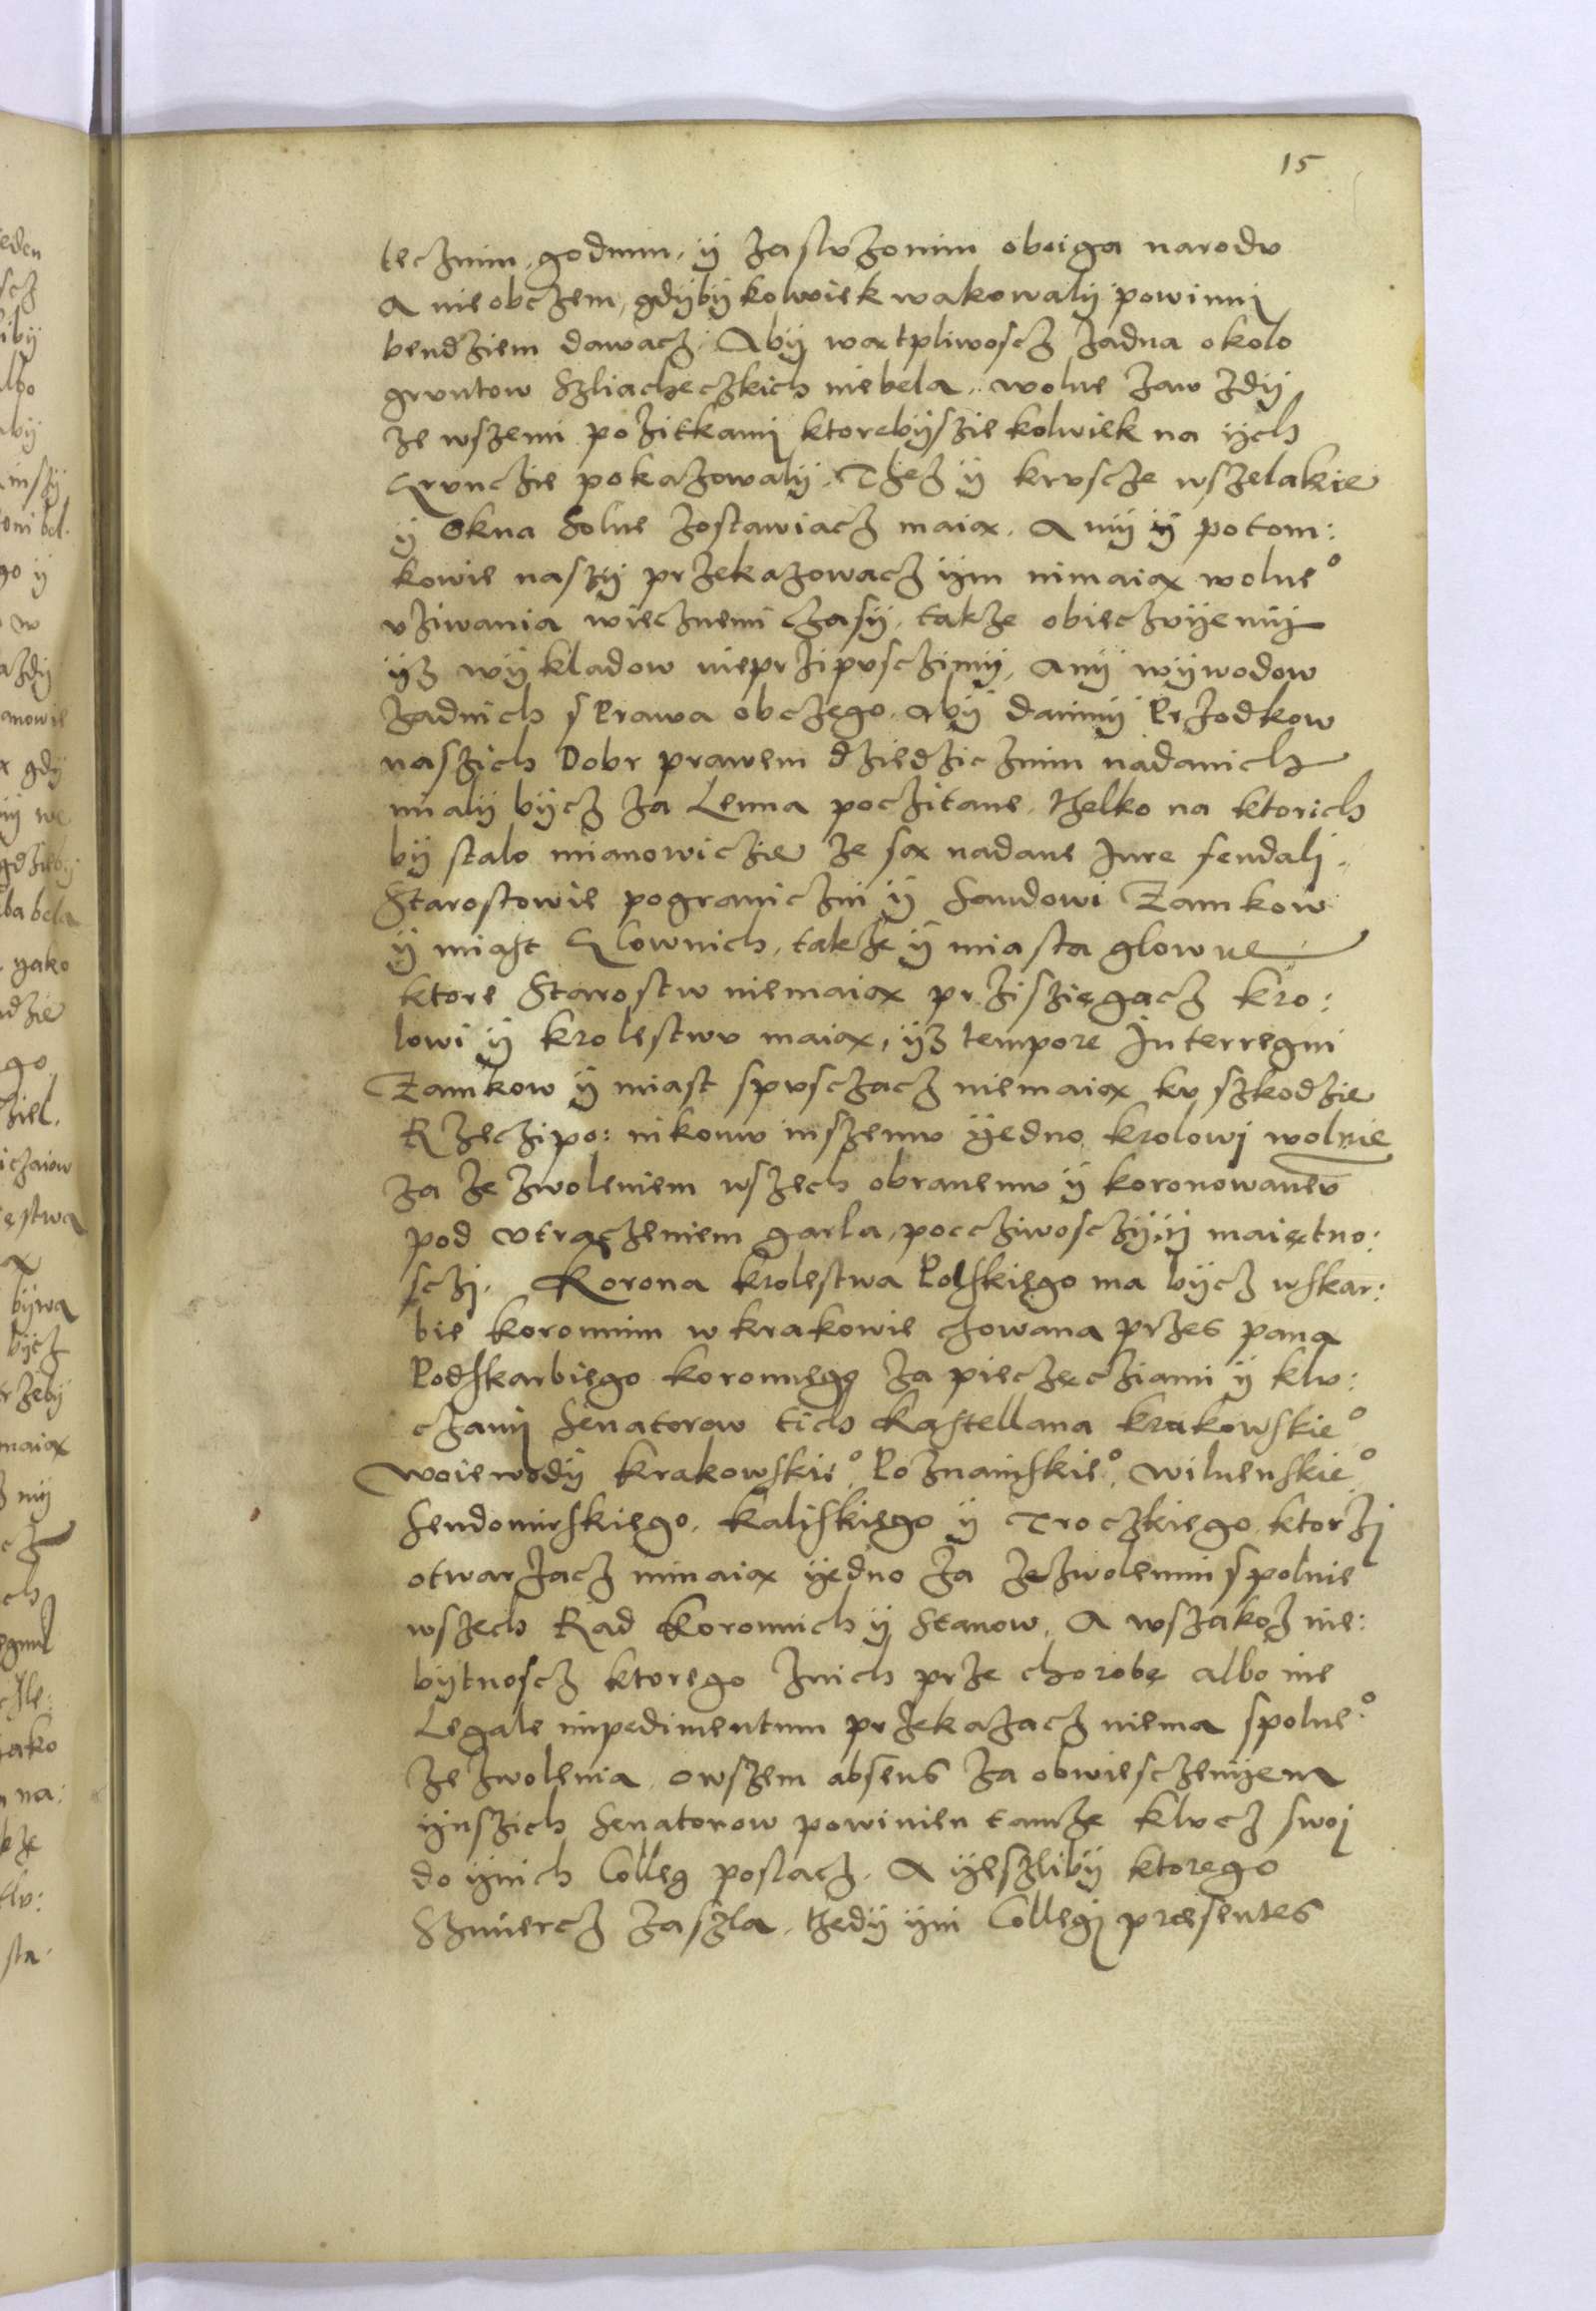 15
tecznim, godnim, ÿ zasluzonim oboiga narodu
A nie obczem, gdÿbÿ kolwiek wakowalÿ powinnj
bendziem dawacz. Abÿ wątpliwoscz zadna okolo
gruntow Szliacheczkich niebela. wolne zawzdÿ
ze wszemi pozitkamj ktorebÿszie kolwiek na ÿch
Grunczie pokazowalÿ. Thez ÿ krusze wszelakie
ÿ Okna Solne zostawiacz maią. A mÿ ÿ potom:
kowie naszÿ przekazowacz ÿm nimaią wolne°
uziwania wiecznemi czasÿ. takze obieczuÿemÿ
ÿz wÿkladow nieprzipusczimÿ, anÿ wÿwodow
zadnich s Prawa obczego, abÿ daninÿ Przodkow
naszich Dobr prawem dziedzicznim nadanich
mialÿ bÿcz za Lenna poczitane. thelko na ktorich
bÿ stalo mianowiczie ze są nadane Jure feudalj.
Starostowie pograniczni ÿ Sandowi Zamkow
ÿ miast Glownich, takze ÿ miasta glowne
ktore Starostw niemaią prziszięgacz kro:
lowi ÿ krolestwu maią, ÿz tempore Interregni
Zamkow ÿ miast spusczacz niemaią ku szkodzie
Rzeczipo: nikomu inszemu ÿedno krolowj wolnie
za zezwoleniem wszech obranemu ÿ koronowaneu
pod utraczeniem garla, pocczivosczÿ, ÿ maiętno:
sczj. Korona krolestwa Polskiego ma bÿcz w skar:
bie koronnim w krakowie chowana przes pana
Podskarbiego koronnego za pieczęcziami ÿ klu:
czamj Senatorow tich Kastellana krakowskie°
Woiewodÿ krakowskie°, Poznanskie°, wilnenskie°,
Sendomirskiego, Kaliskiego ÿ Troczkiego, ktorzj
otwarzacz nimaią ÿedno za zezwolenim spolnie
wszech Rad Koronnich ÿ Stanow. A wszakoz nie:
bÿtnoscz ktorego znich prze chorobę albo ine
Legale impedimentum przekazacz niema spolne°
zezwolenia. owszem absens za obwiesczenÿem
ÿnszich Senatorow powinien tamze klucz swoj
do ÿnich Colleg poslacz. A ÿeszlibÿ ktorego
Szmiercz zaszla, thedÿ ÿni Collegj præsentes